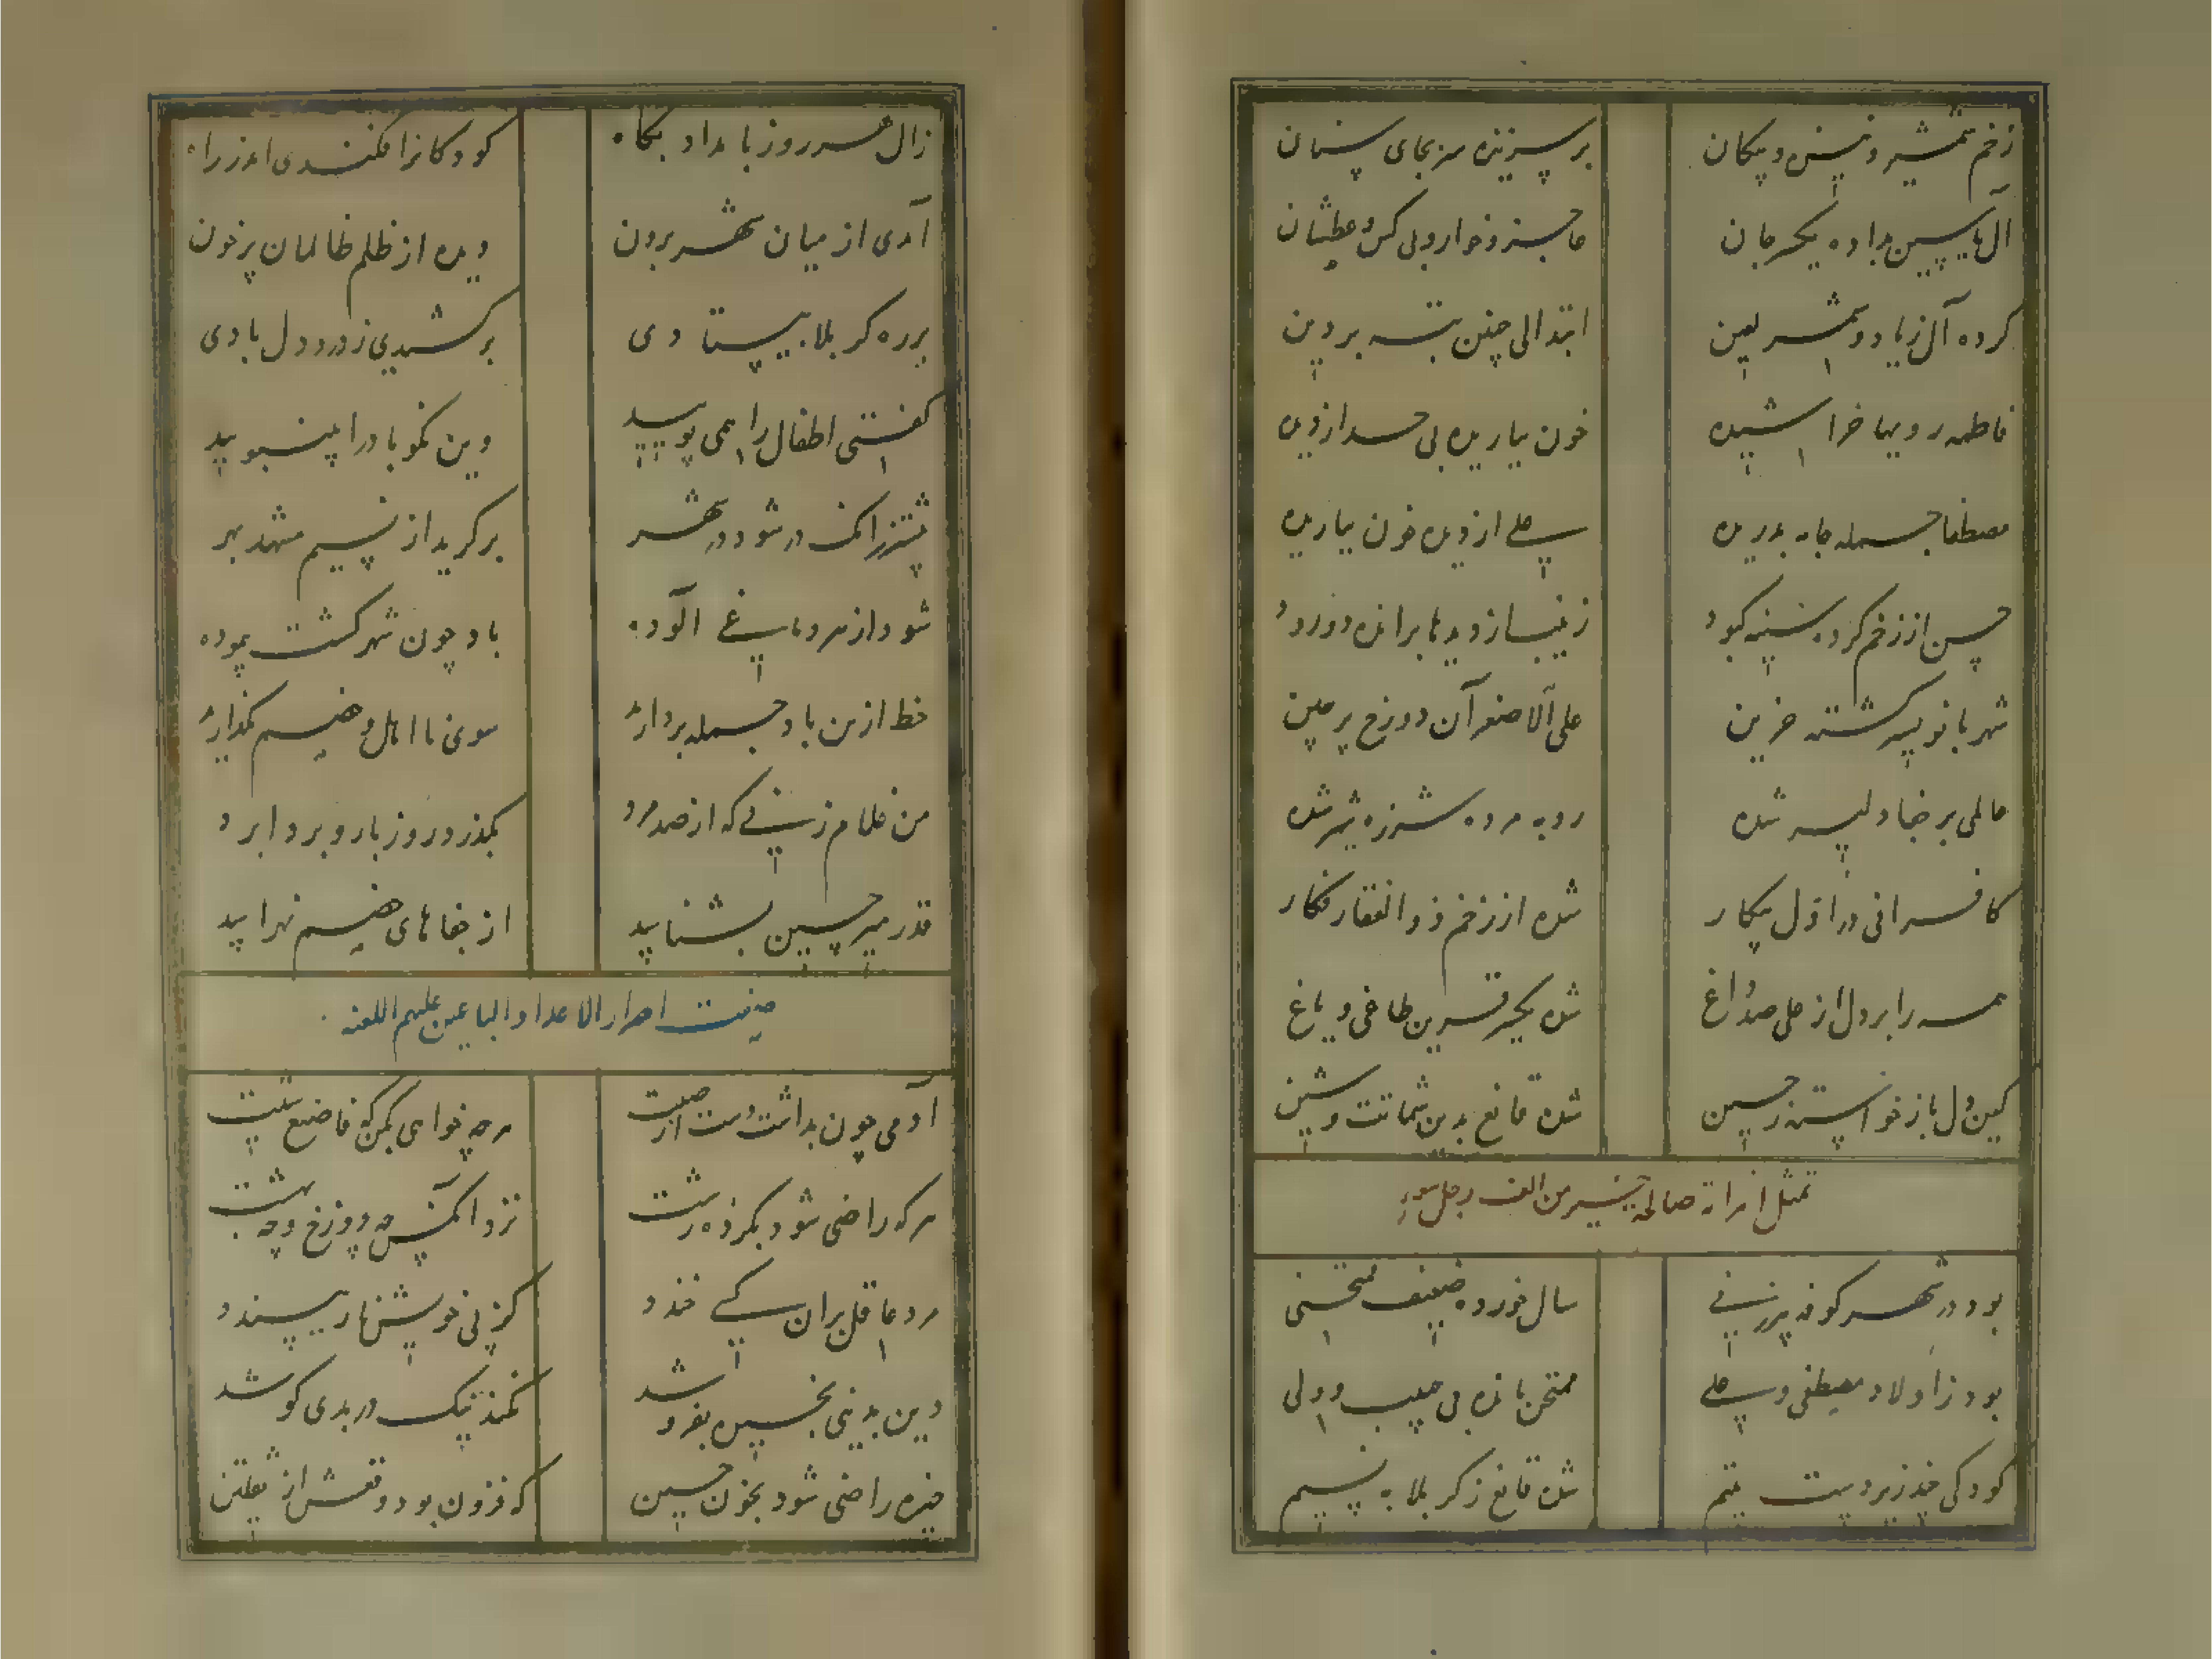 زخم شمشیر و نیزه و پیکان
بر سر نیزه سر بجای سنان
آل یاسین بداده یکسر جان
عاجز و خوار و بی کس و عطشان
کرده آل زیاد و شمر لعین
ابتدای چنین تبه بر دین
فاطمه رویها خراشیده
خون بباریده بی حد از دیده
مصطفا جمله جامه بدریده
علی از دیده خون بباریده
حسن از زخم کرده سینه کبود
زینب از دیدها برانده دو رود
شهربانو پیر گشته حزین
علی الاصغر آن دو رخ پر چین
عالمی بر جفا دلیر شده
روبه مرده شرزه شیر شده
کافرانی در اول پیکار
شده از زخم ذوالفقار فکار
همه را بر دل از علی صد داغ
شده یکسر قرین طاغی و یاغ
کین دل باز خواسته ز حسین
شده قانع بدین شماتت و شین
تمثل امراة صالحة خیر من الف رجل سوء
بود در شهر کوفه پیر زنی
سال خورده ضعیف ممتحنی
بود ز اولاد مصطفی و علی
ممتحن مانده بی حبیب و ولی
کودکی چند زیر دست یتیم
شده قانع ز کربلا به نسیم
زال هر روز بامداد بگاه
کودکانرا فکندی اندر راه
آمدی از میان شهر برون
دیده از ظلم ظالمان پر خون
بر ره کربلا بیستادی
برکشیدی ز درد دل بادی
گفتی اطفال را همی پویید
وین نکو باد را بنبویید
پیشتر زانک در شود در شهر
برگرید از نسیم مشهد بهر
شود از مرد باغی آلوده
باد چون شهر گشت پیموده
حظ ازین باد جمله بردارند
سوی نا اهل و خصم نگذارند
من غلام زنی که از صد مرد
بگذرد روز بار و برد ابرد
قدر میر حسین بشناسید
از جفاهای خصم نهراسید
صفت احرار الاعدا و الباغین علیهم اللعنه
آدمی چون بداشت دست از صیت
هر چه خواهی بکن که فاصنع شیت
هر که راضی شود بکرده زشت
نزد آنکس چه دوزخ و چه بهشت
مرد عاقل بران کسی خندد
کز پی خویش نار بپسندد
دین بدنیی بخیره بفروشد
نکند نیک و در بدی کوشد
خیره راضی شود بخون حسین
که فزون بود وقعش از ثقلین